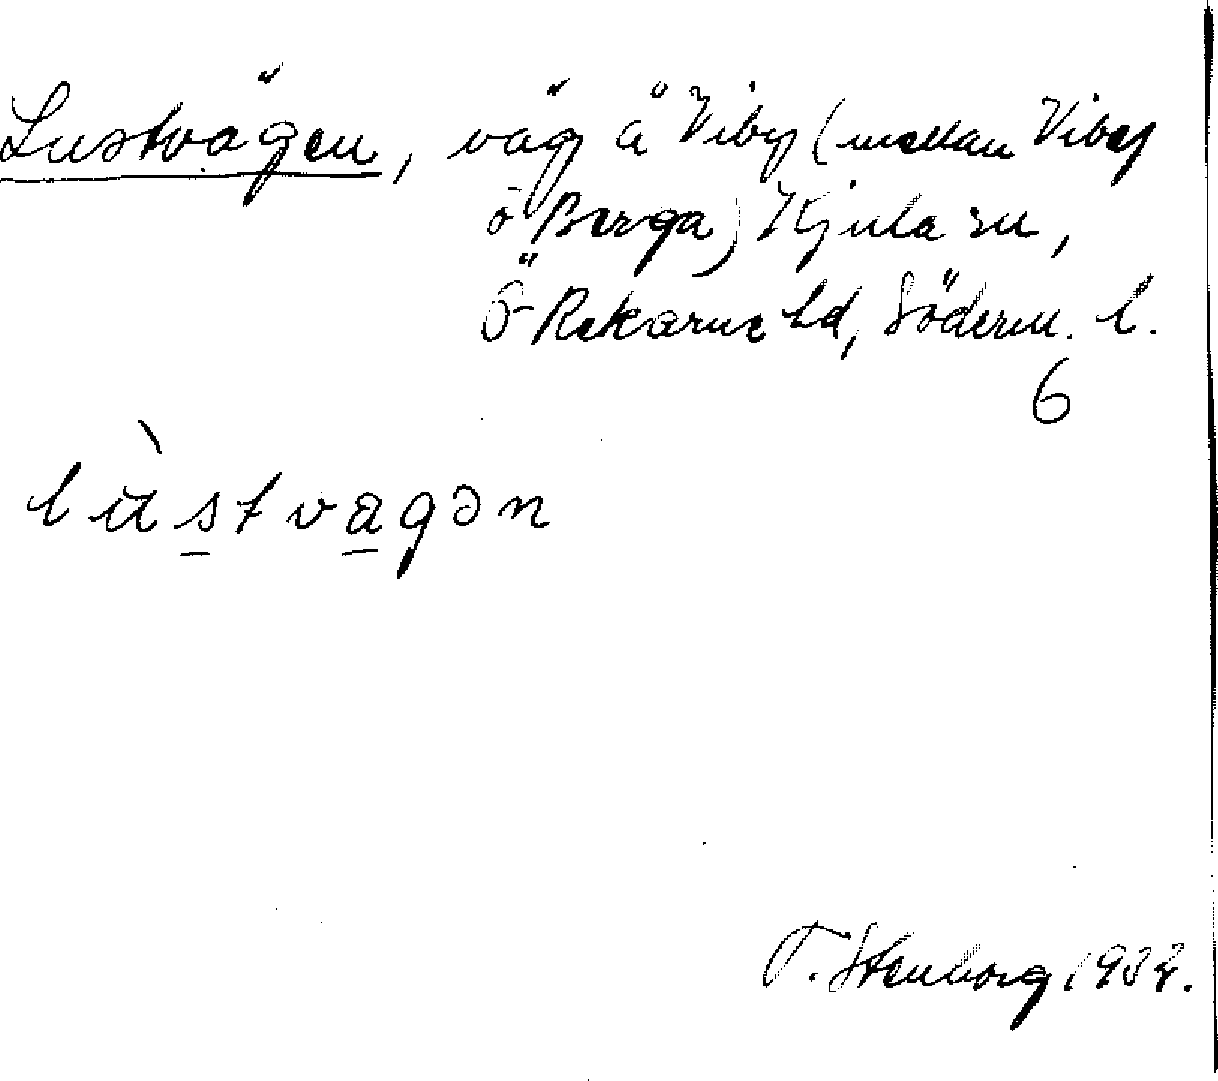 Lustvägen, väg å Viby (mellan Viby
o Berga) Kjula sn,
Ö-Rekarne hd, Söderm. l.
6
lùstvagən
T. Stenborg 1932.